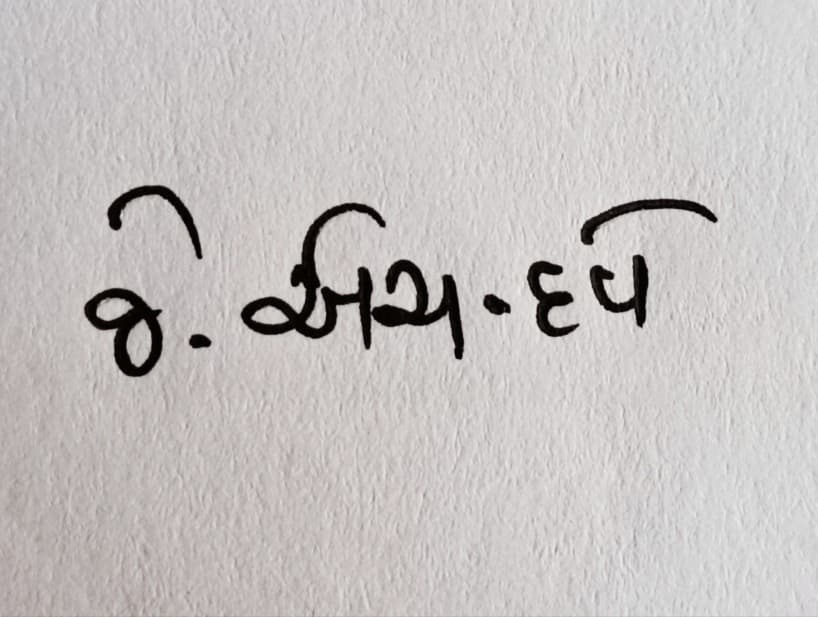 જે. એચ. દવે